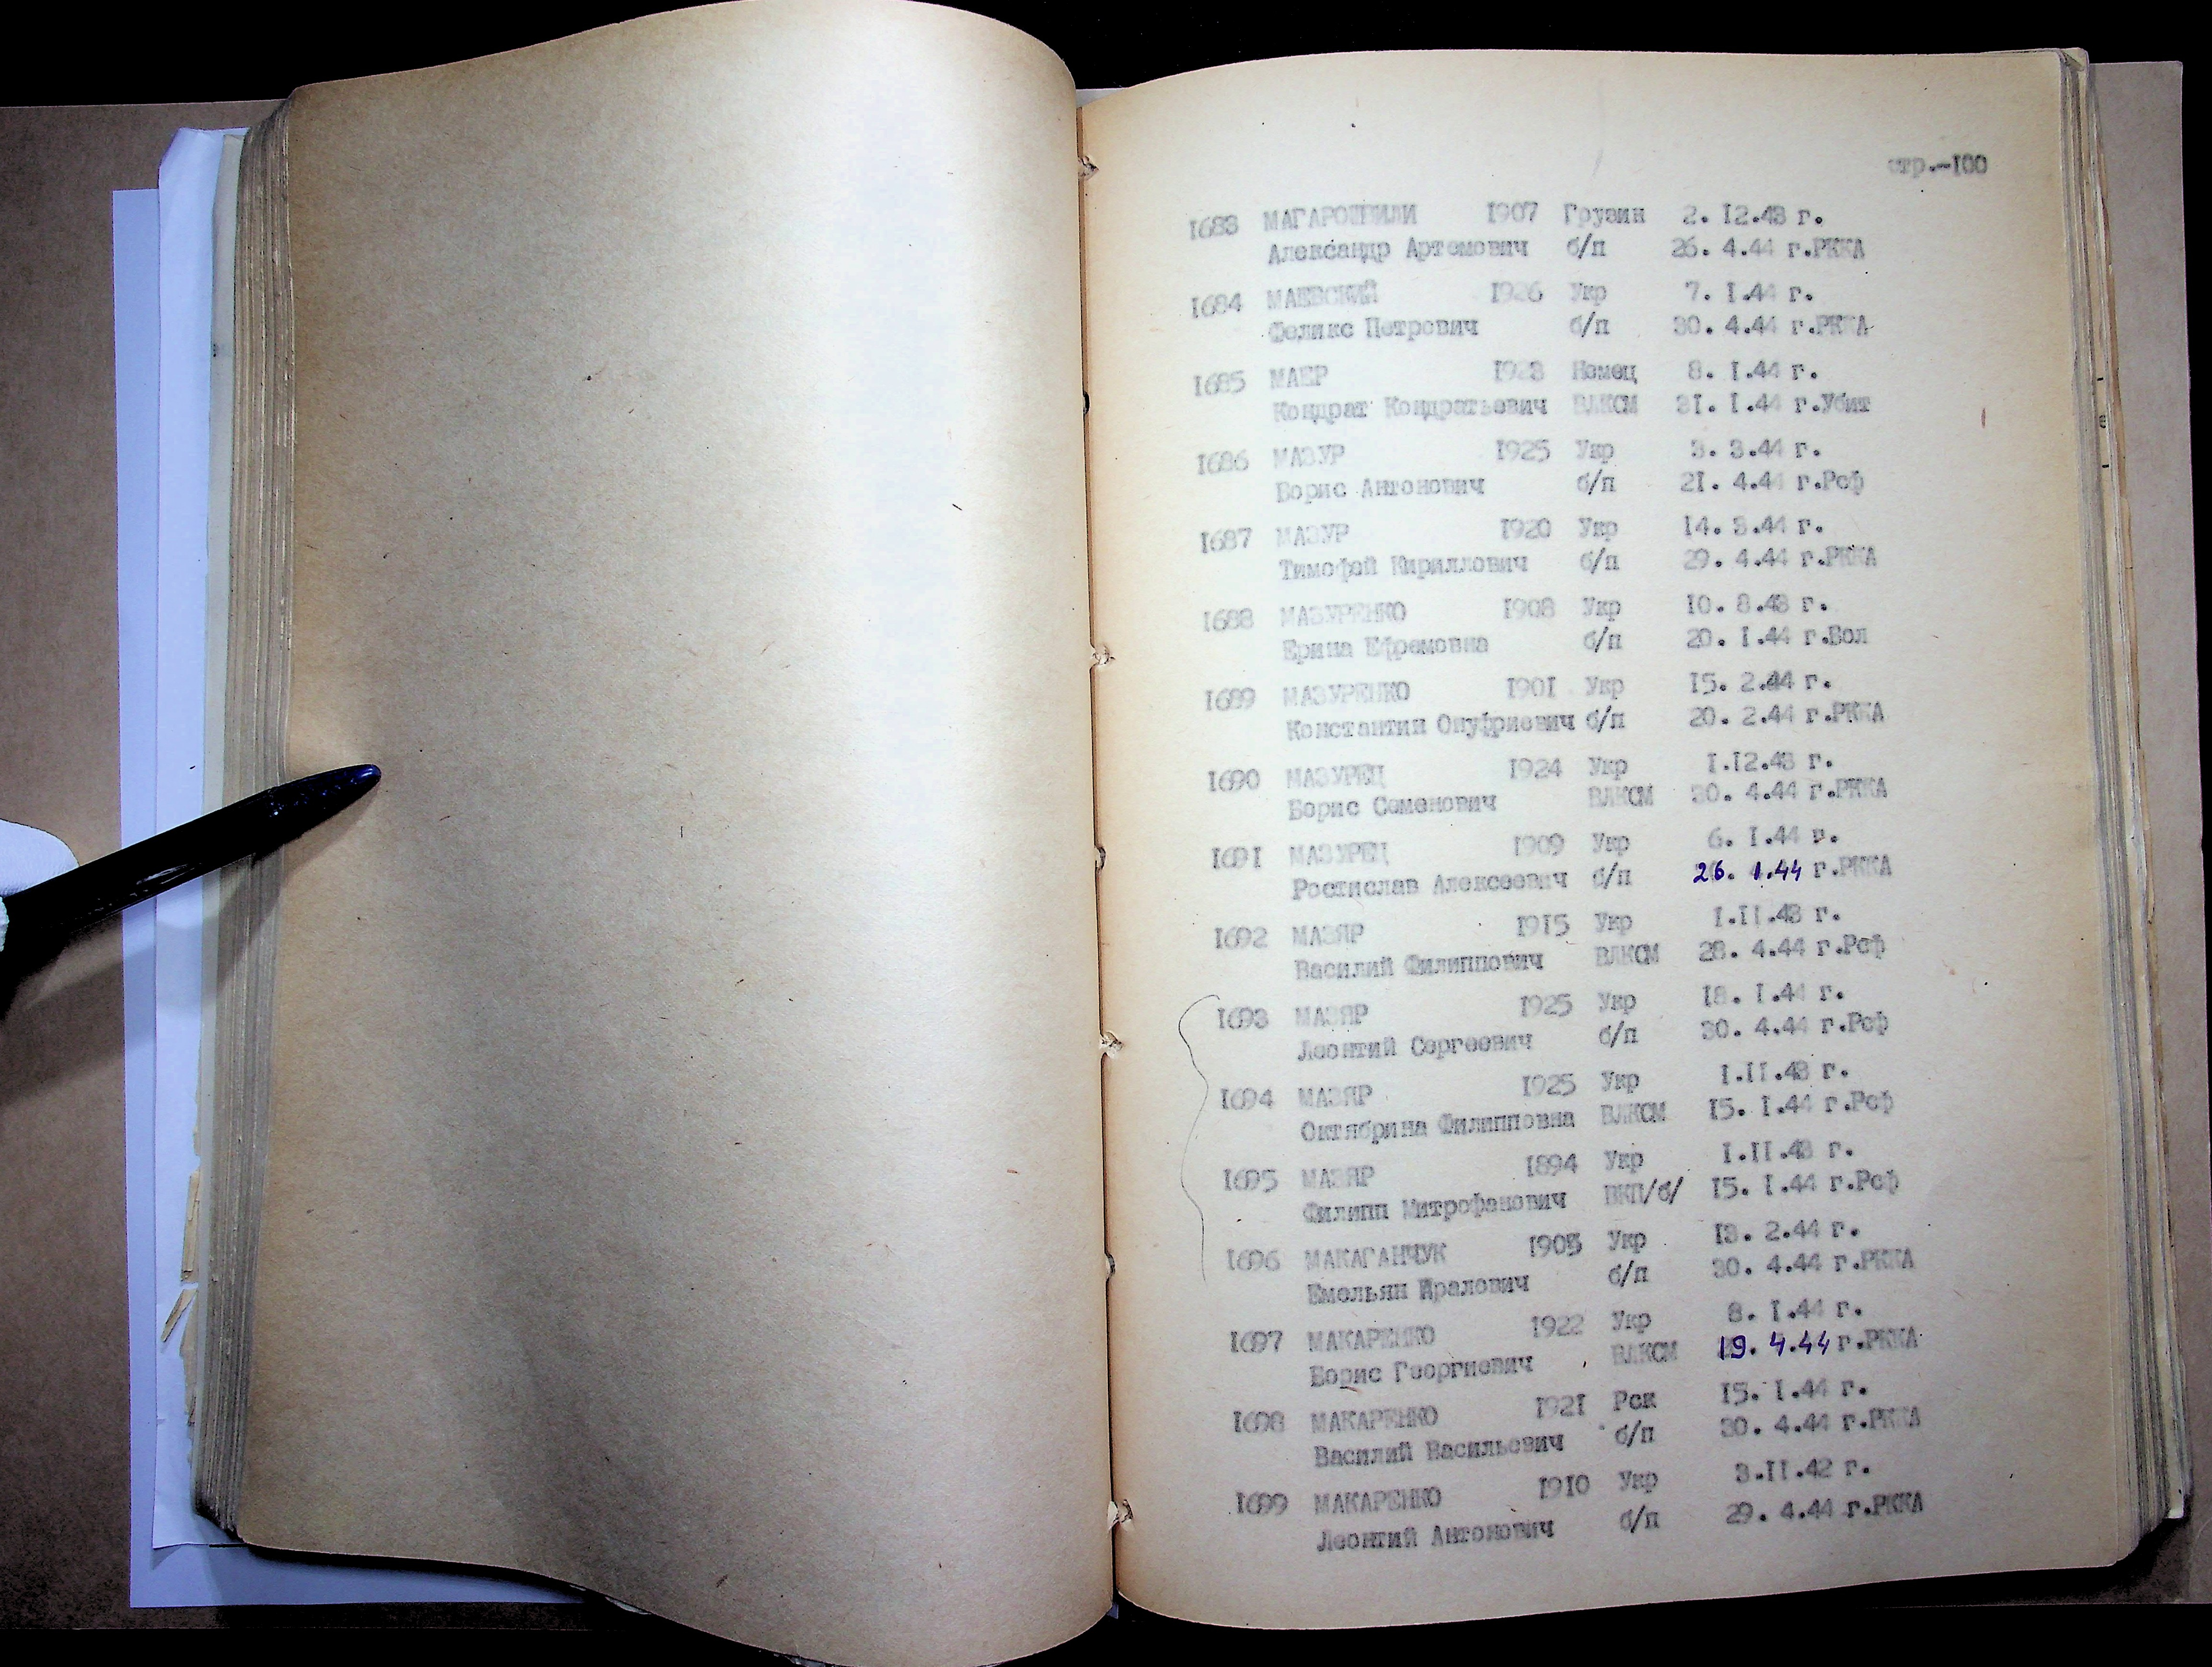 стр.-100
1683 МАГАРОШВИЛИ 1907 Грузин 2. 12.43 г.
Александр Артемович б/п 26. 4.44 г.РККА
1684 МАЕВСКИЙ 1926 Укр 7. 1.44 г.
Феликс Петрович б/п 30. 4.44 г.РККА
1685 МАЕР 1923 Немец 8. 1.44 г.
Кондрат Кондратьевич ВЛКСМ 31. 1.44 г.Убит
1686 МАЗУР 1925 Укр 3. 3.44 г.
Борис Антонович б/п 21. 4.44 г.Рсф
1687 МАЗУР 1920 Укр 14. 3.44 г.
Тимофей Кириллович б/п 29. 4.44 г.РККА
1688 МАЗУРЕНКО 1908 Укр 10. 8.43 г.
Ерина Ефремовна б/п 20. 1.44 г.Бол
1689 МАЗУРЕНКО 1901 Укр 15. 2.44 г.
Константин Онуфриевич б/п 20. 2.44 г.РККА
1690 МАЗУРЕЦ 1924 Укр 1.12.43 г.
Борис Семенович ВЛКСМ 30. 4.44 г.РККА
1691 МАЗУРЕЦ 1909 Укр 6. 1.44 г.
Ростислав Алексеевич б/п 26. 1.44 г.РККА
1692 МАЗЯР 1915 Укр 1.11.43 г.
Василий Филиппович ВЛКСМ 28. 4.44 г.Рсф
1693 МАЗЯР 1925 Укр 18. 1.44 г.
Леонтий Сергеевич б/п 30. 4.44 г.Рсф
1694 МАЗЯР 1925 Укр 1.11.43 г.
Октябрина Филипповна ВЛКСМ 15. 1.44 г.Рсф
1695 МАЗЯР 1894 Укр 1.11.43 г.
Филипп Митрофанович ВКП/б/ 15. 1.44 г.Рсф
1696 МАКАГАНЧУК 1905 Укр 13. 2.44 г.
Емельян Иралович б/п 30. 4.44 г.РККА
1697 МАКАРЕНКО 1922 Укр 8. 1.44 г.
Борис Георгиевич ВЛКСМ 19. 4.44 г.РККА
1698 МАКАРЕНКО 1921 Рск 15. 1.44 г.
Василий Васильевич б/п 30. 4.44 г.РККА
1699 МАКАРЕНКО 1910 Укр 3.11.42 г.
Леонтий Антонович б/п 29. 4.44 г.РККА